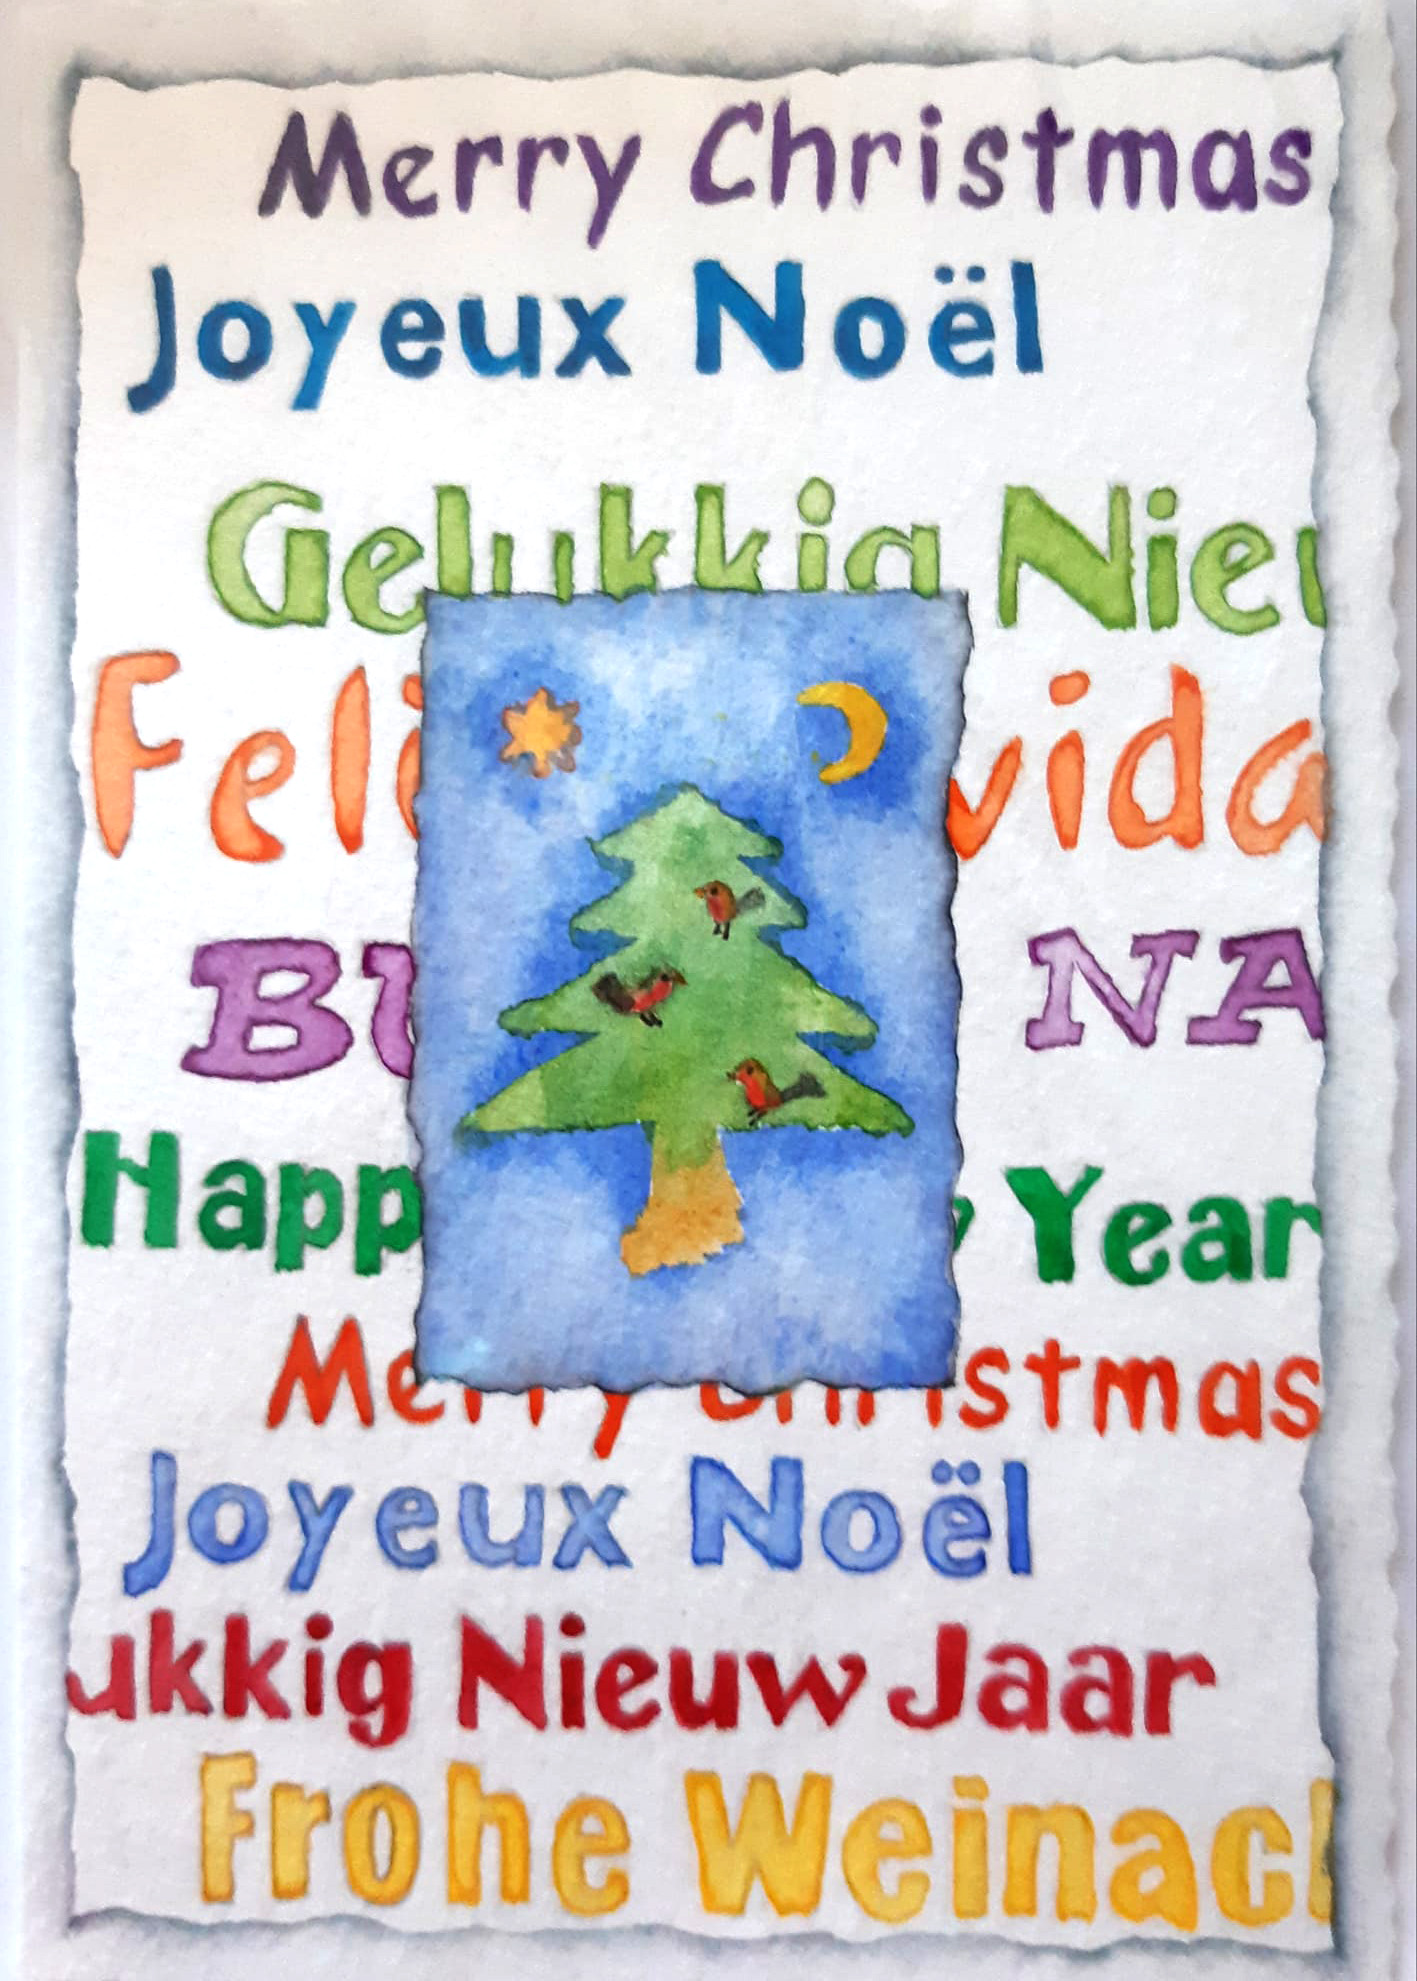 Merry Christmas
Joyeux Noël
Gelukkig Nieu
Feli vida
BU NA
Happ Year
Merry Christmas
Joyeux Noël
ukkig Nieuw Jaar
Frohe Weinach